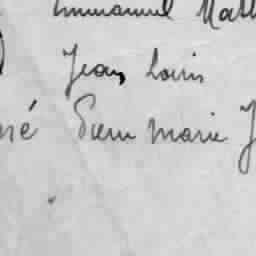 Emmanuel Math
Jean Louis
né Pierre Marie J